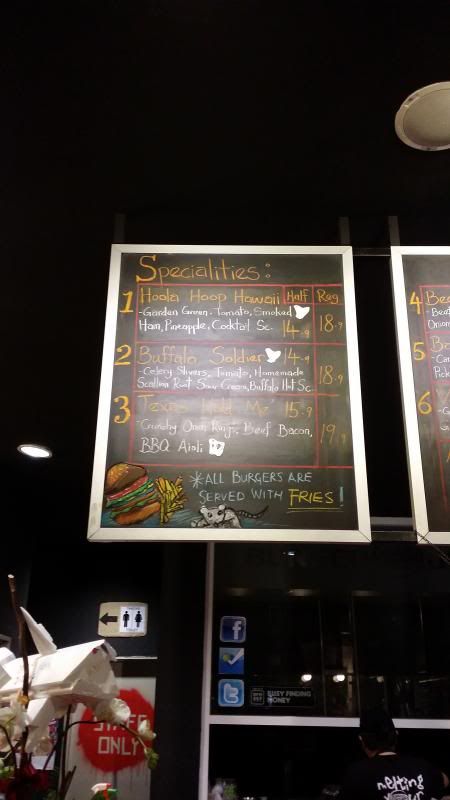 Specialities:
1 Hoola Hoop Hawaii Half Reg
-Garden Green, Tomato, Smoked
Ham, Pineapple, Cocktail Sc. 14.9 18.9
2 Buffalo Soldier 14.9
-Celery Slivers, Tomato, Homemade
Scallion Root Sour Cream, Buffalo Hot Sc. 18.9
3 Texas Hold Me 15.9
-Crunchy Onion Rings, Beef Bacon,
BBQ Aioli 19.9
*ALL BURGERS ARE
SERVED WITH FRIES!
4
5
6
TOILET
STAFF
ONLY
f
t
BUSY FINDING
MONEY
melting
your